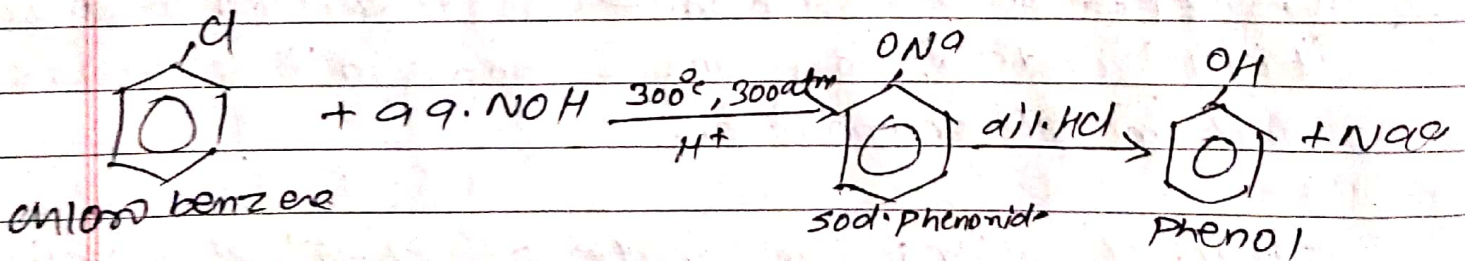 Cl ONa OH
+ aq. NOH 300°c, 300atm dil. HCl + NaCl
H+
chloro benzene sod. phenonide phenol